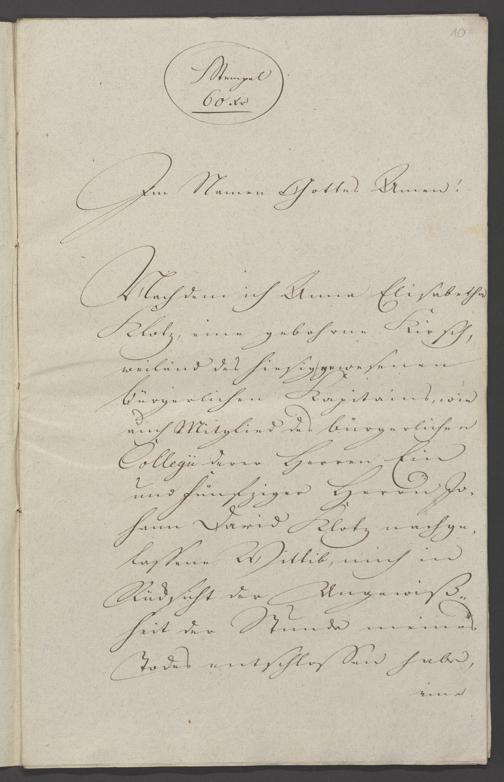 10
Stempel
60 xr
Im Namen Gottes Amen!
Nachdem ich Anna Elisabetha
Klotz, eine gebohrne Kirsch,
weiland des hiesig gewesenen
bürgerlichen Kapitains, wie
auch Mitglied des bürgerlichen
Collegii derer Herren Ein
und fünfziger Herrn Jo-
hann David Klotz nachge-
lassene Wittib, mich in
Rücksicht der Ungewiß-
heit der Stunde meines
Todes entschlossen habe,
eine